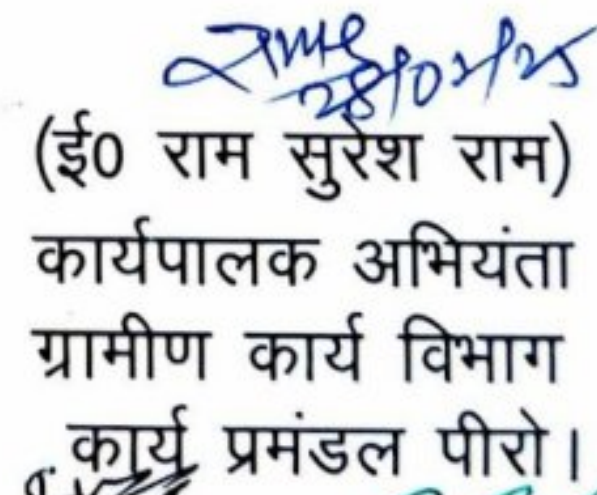 28/02/25
(ई0 राम सुरेश राम)
कार्यपालक अभियंता
ग्रामीण कार्य विभाग
कार्य प्रमंडल पीरो।